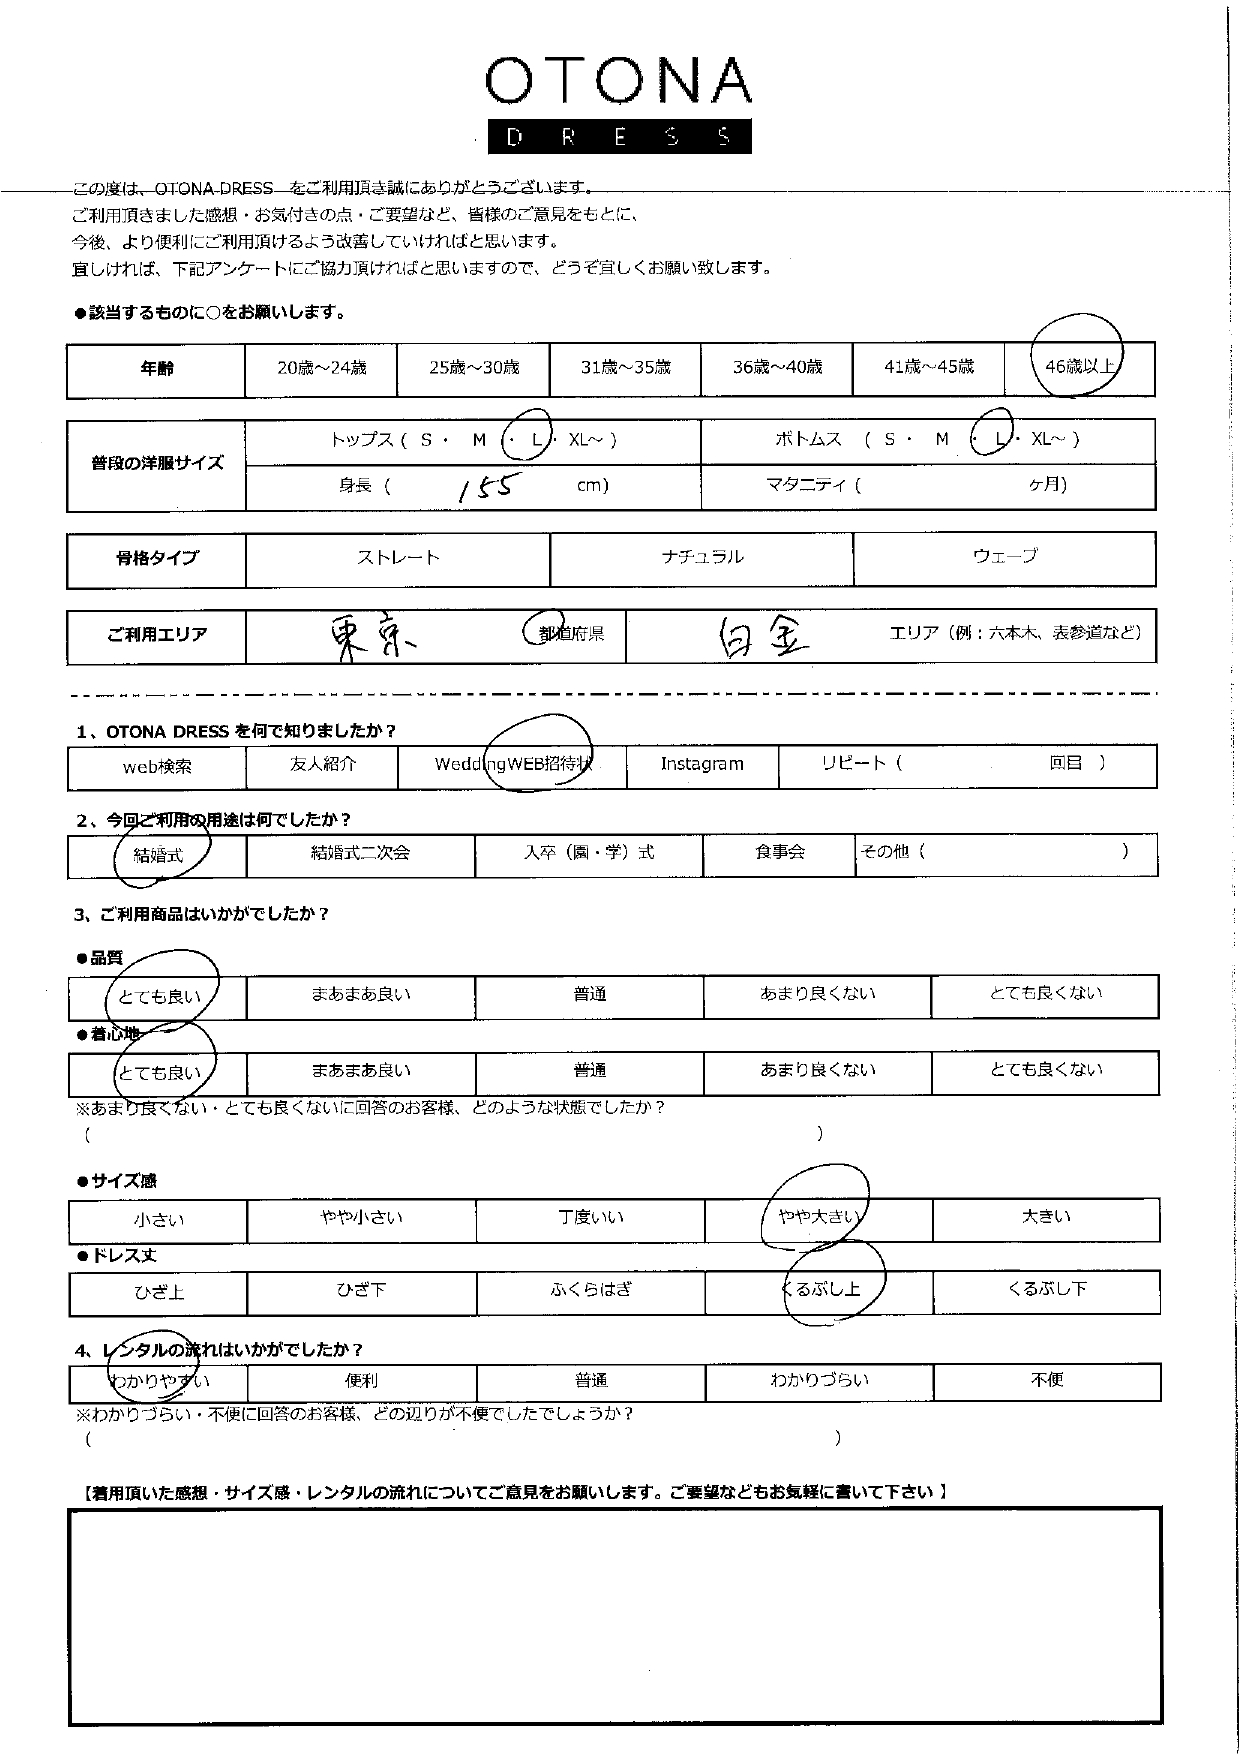 OTONA
DRESS
この度は、OTONA DRESS をご利用頂き誠にありがとうございます。
ご利用頂きました感想・お気付きの点・ご要望など、皆様のご意見をもとに、
今後、より便利にご利用頂けるよう改善していければと思います。
宜しければ、下記アンケートにご協力頂ければと思いますので、どうぞ宜しくお願い致します。
●該当するものに○をお願いします。
年齢 20歳～24歳 25歳～30歳 31歳～35歳 36歳～40歳 41歳～45歳 46歳以上
普段の洋服サイズ トップス ( S ・ M ・ L ・ XL～ ) ボトムス ( S ・ M ・ L ・ XL～ )
身長 ( 155 cm) マタニティ ( ヶ月)
骨格タイプ ストレート ナチュラル ウェーブ
ご利用エリア 東京 都道府県 白金 エリア（例：六本木、表参道など）
1、OTONA DRESS を何で知りましたか？
web検索 友人紹介 WeddingWEB招待状 Instagram リピート ( 回目 )
2、今回ご利用の用途は何でしたか？
結婚式 結婚式二次会 入卒（園・学）式 食事会 その他 ( )
3、ご利用商品はいかがでしたか？
●品質
とても良い まあまあ良い 普通 あまり良くない とても良くない
●着心地
とても良い まあまあ良い 普通 あまり良くない とても良くない
※あまり良くない・とても良くないに回答のお客様、どのような状態でしたか？
( )
●サイズ感
小さい やや小さい 丁度いい やや大きい 大きい
●ドレス丈
ひざ上 ひざ下 ふくらはぎ くるぶし上 くるぶし下
4、レンタルの流れはいかがでしたか？
わかりやすい 便利 普通 わかりづらい 不便
※わかりづらい・不便に回答のお客様、どの辺りが不便でしたでしょうか？
( )
【着用頂いた感想・サイズ感・レンタルの流れについてご意見をお願いします。ご要望などもお気軽に書いて下さい 】